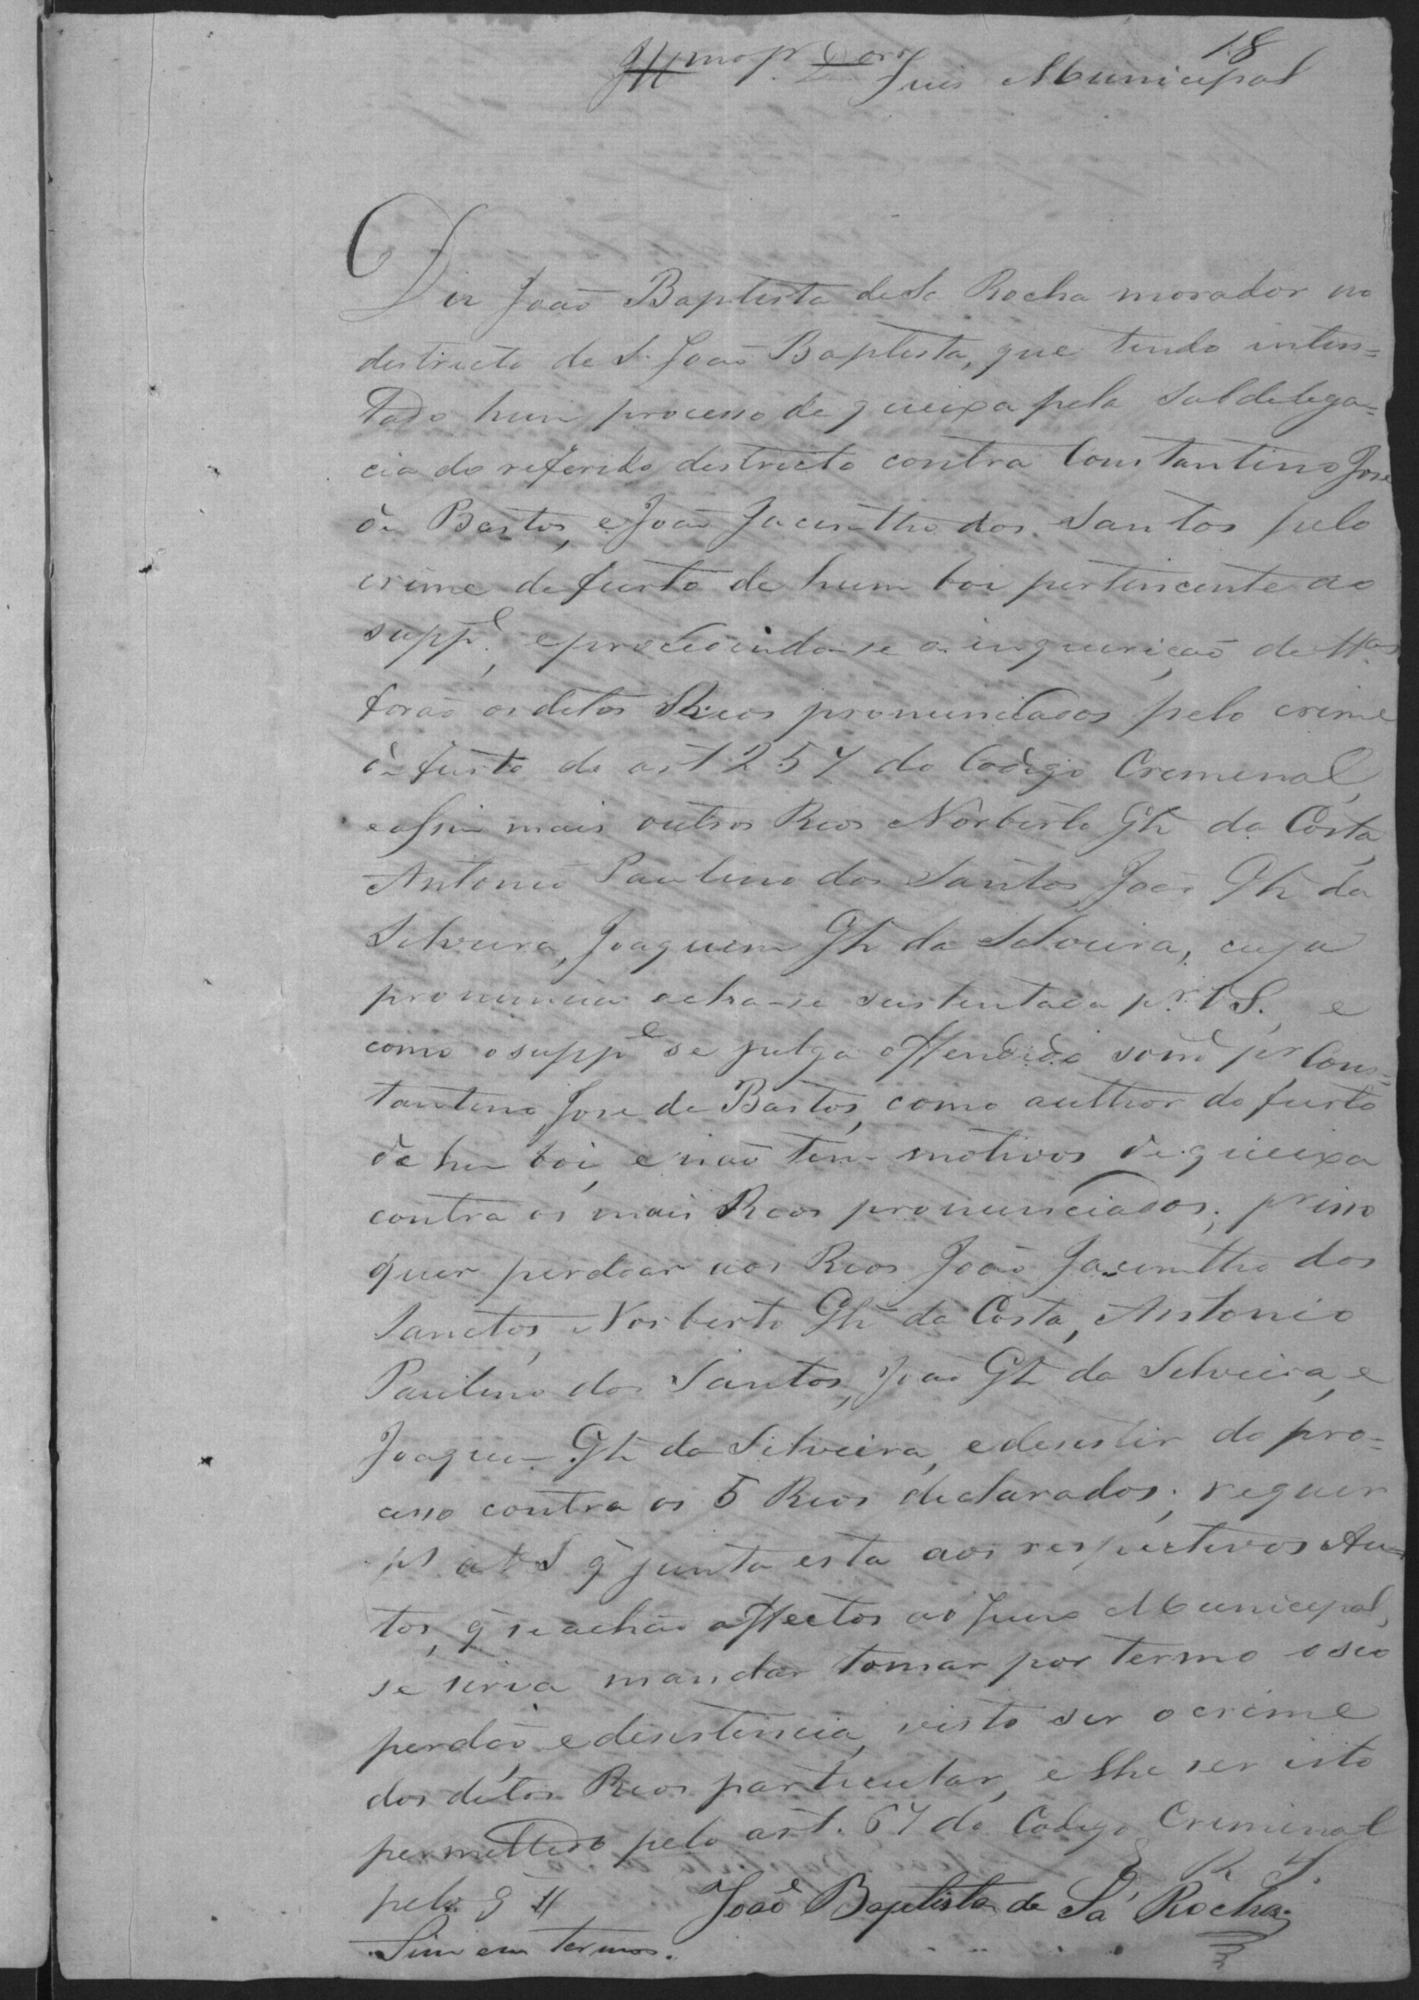 18
Illmo Sr. Dor Juis Municipal
Diz João Baptista de Sa Rocha morador no
destricto de S. João Baptista, que tendo inten=
tado hum processo de queixa pela Subdelega=
cia do referido destricto contra Constantino Jose
de Bastos, e João Jacintho dos Santos pelo
crime de furto de hum boi pertencente ao
suppe, e procedendo-se a inquirição de ttas
forão os ditos Reos pronunciados pelo crime
de furto do art 257 do Codigo Cremenal,
e assim mais outros Reos Norberto Glz da Costa,
Antonio Paulino dos Santos, João Glz da
Silveira, Joaquim Glz da Silveira, cuja
pronuncia acha-se sustentada pr. V S., e
como o suppe se julga offendido somte pr Cons=
tantino Jose de Bastos, como author do furto
de hum boi, e não tem motivos de queixa
contra os mais Reos pronunciados; pr isso
quer perdoar aos Reos João Jacintho dos
Sanctos, Norberto Glz da Costa, Antonio
Paulino dos Santos, João Glz da Silveira, e
Joaquim Glz da Silveira, e desistir do pro=
cesso contra os 5 Reos declarados; requer
pt a V S q junta esta aos respectivos Au=
tos, q se achão affectos ao Juiso Municipal,
se sirva mandar tomar por termo o seo
perdão, e desistencia, visto ser o crime
dos ditos Reos particular, e lhe ser isto
permettido pelo art. 67 do Codigo Cremenal
E R J.
pelo q
João Baptista de Sá Rocha
Sim em termos.